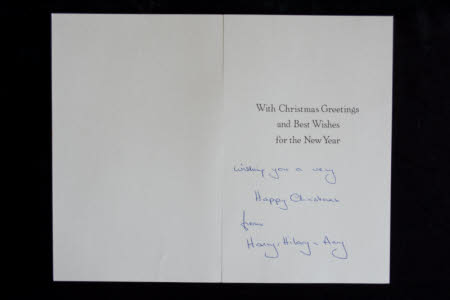 With Christmas Greetings
and Best Wishes
for the New Year
wishing you a very
Happy Christmas
from
Harry + Hilary + Amy